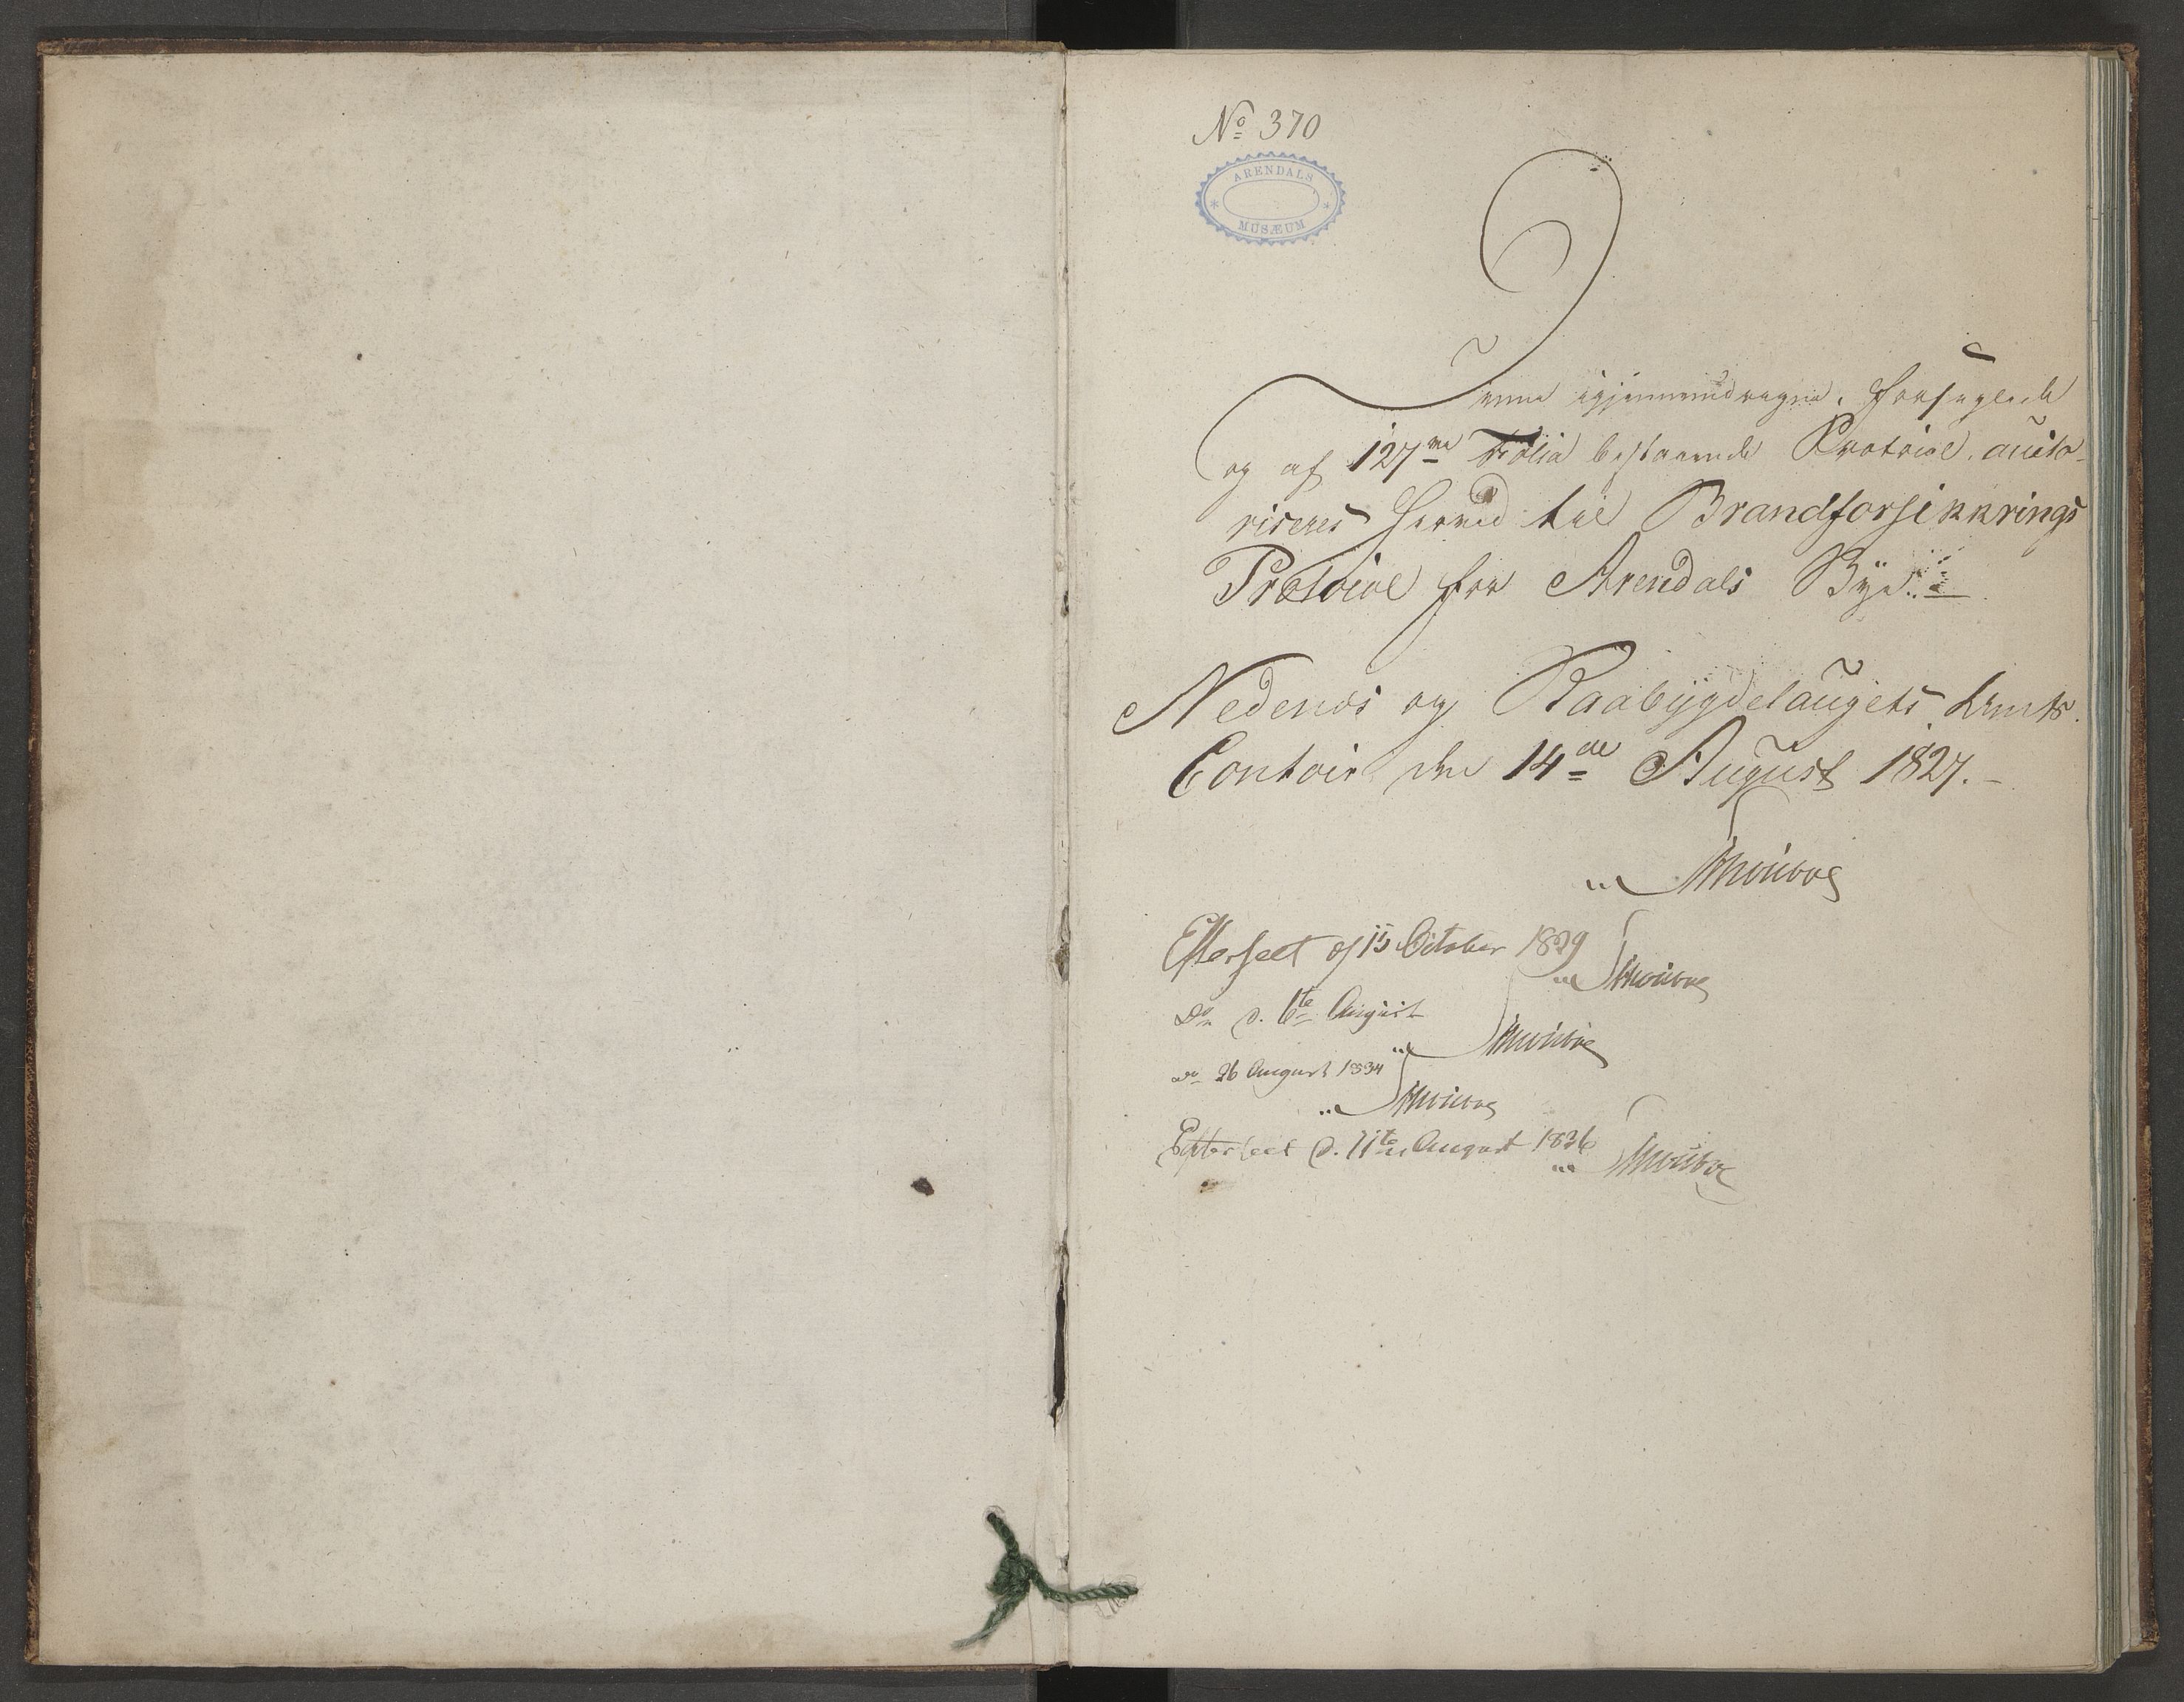 No 370
ARENDALS
MUSÆUM
Denne igjennemdragne, forseglede
og af 127ve Folia bestaaende Protocol, auto-
riseres herved til Brandforsikkrings
Protocol for Arendals Bye.
Nedenæs og Raabygdelaugets Amts
Contoir den 14de August 1827.
Efterseet d 15 October 1829
Do d. 6te August
do 26 August 1834
Efterseet d. 11te August 1836